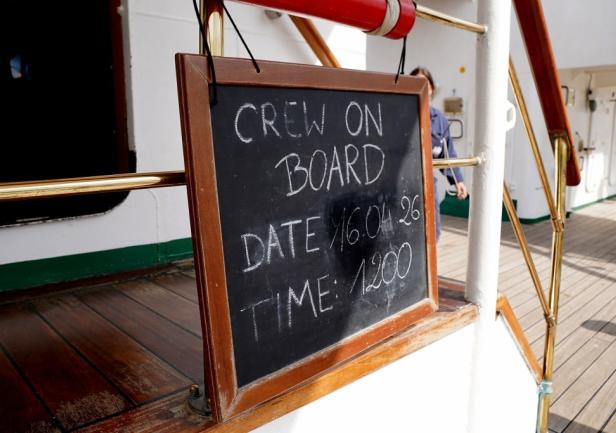 CREW ON
BOARD
DATE 16.04.26
TIME: 1200